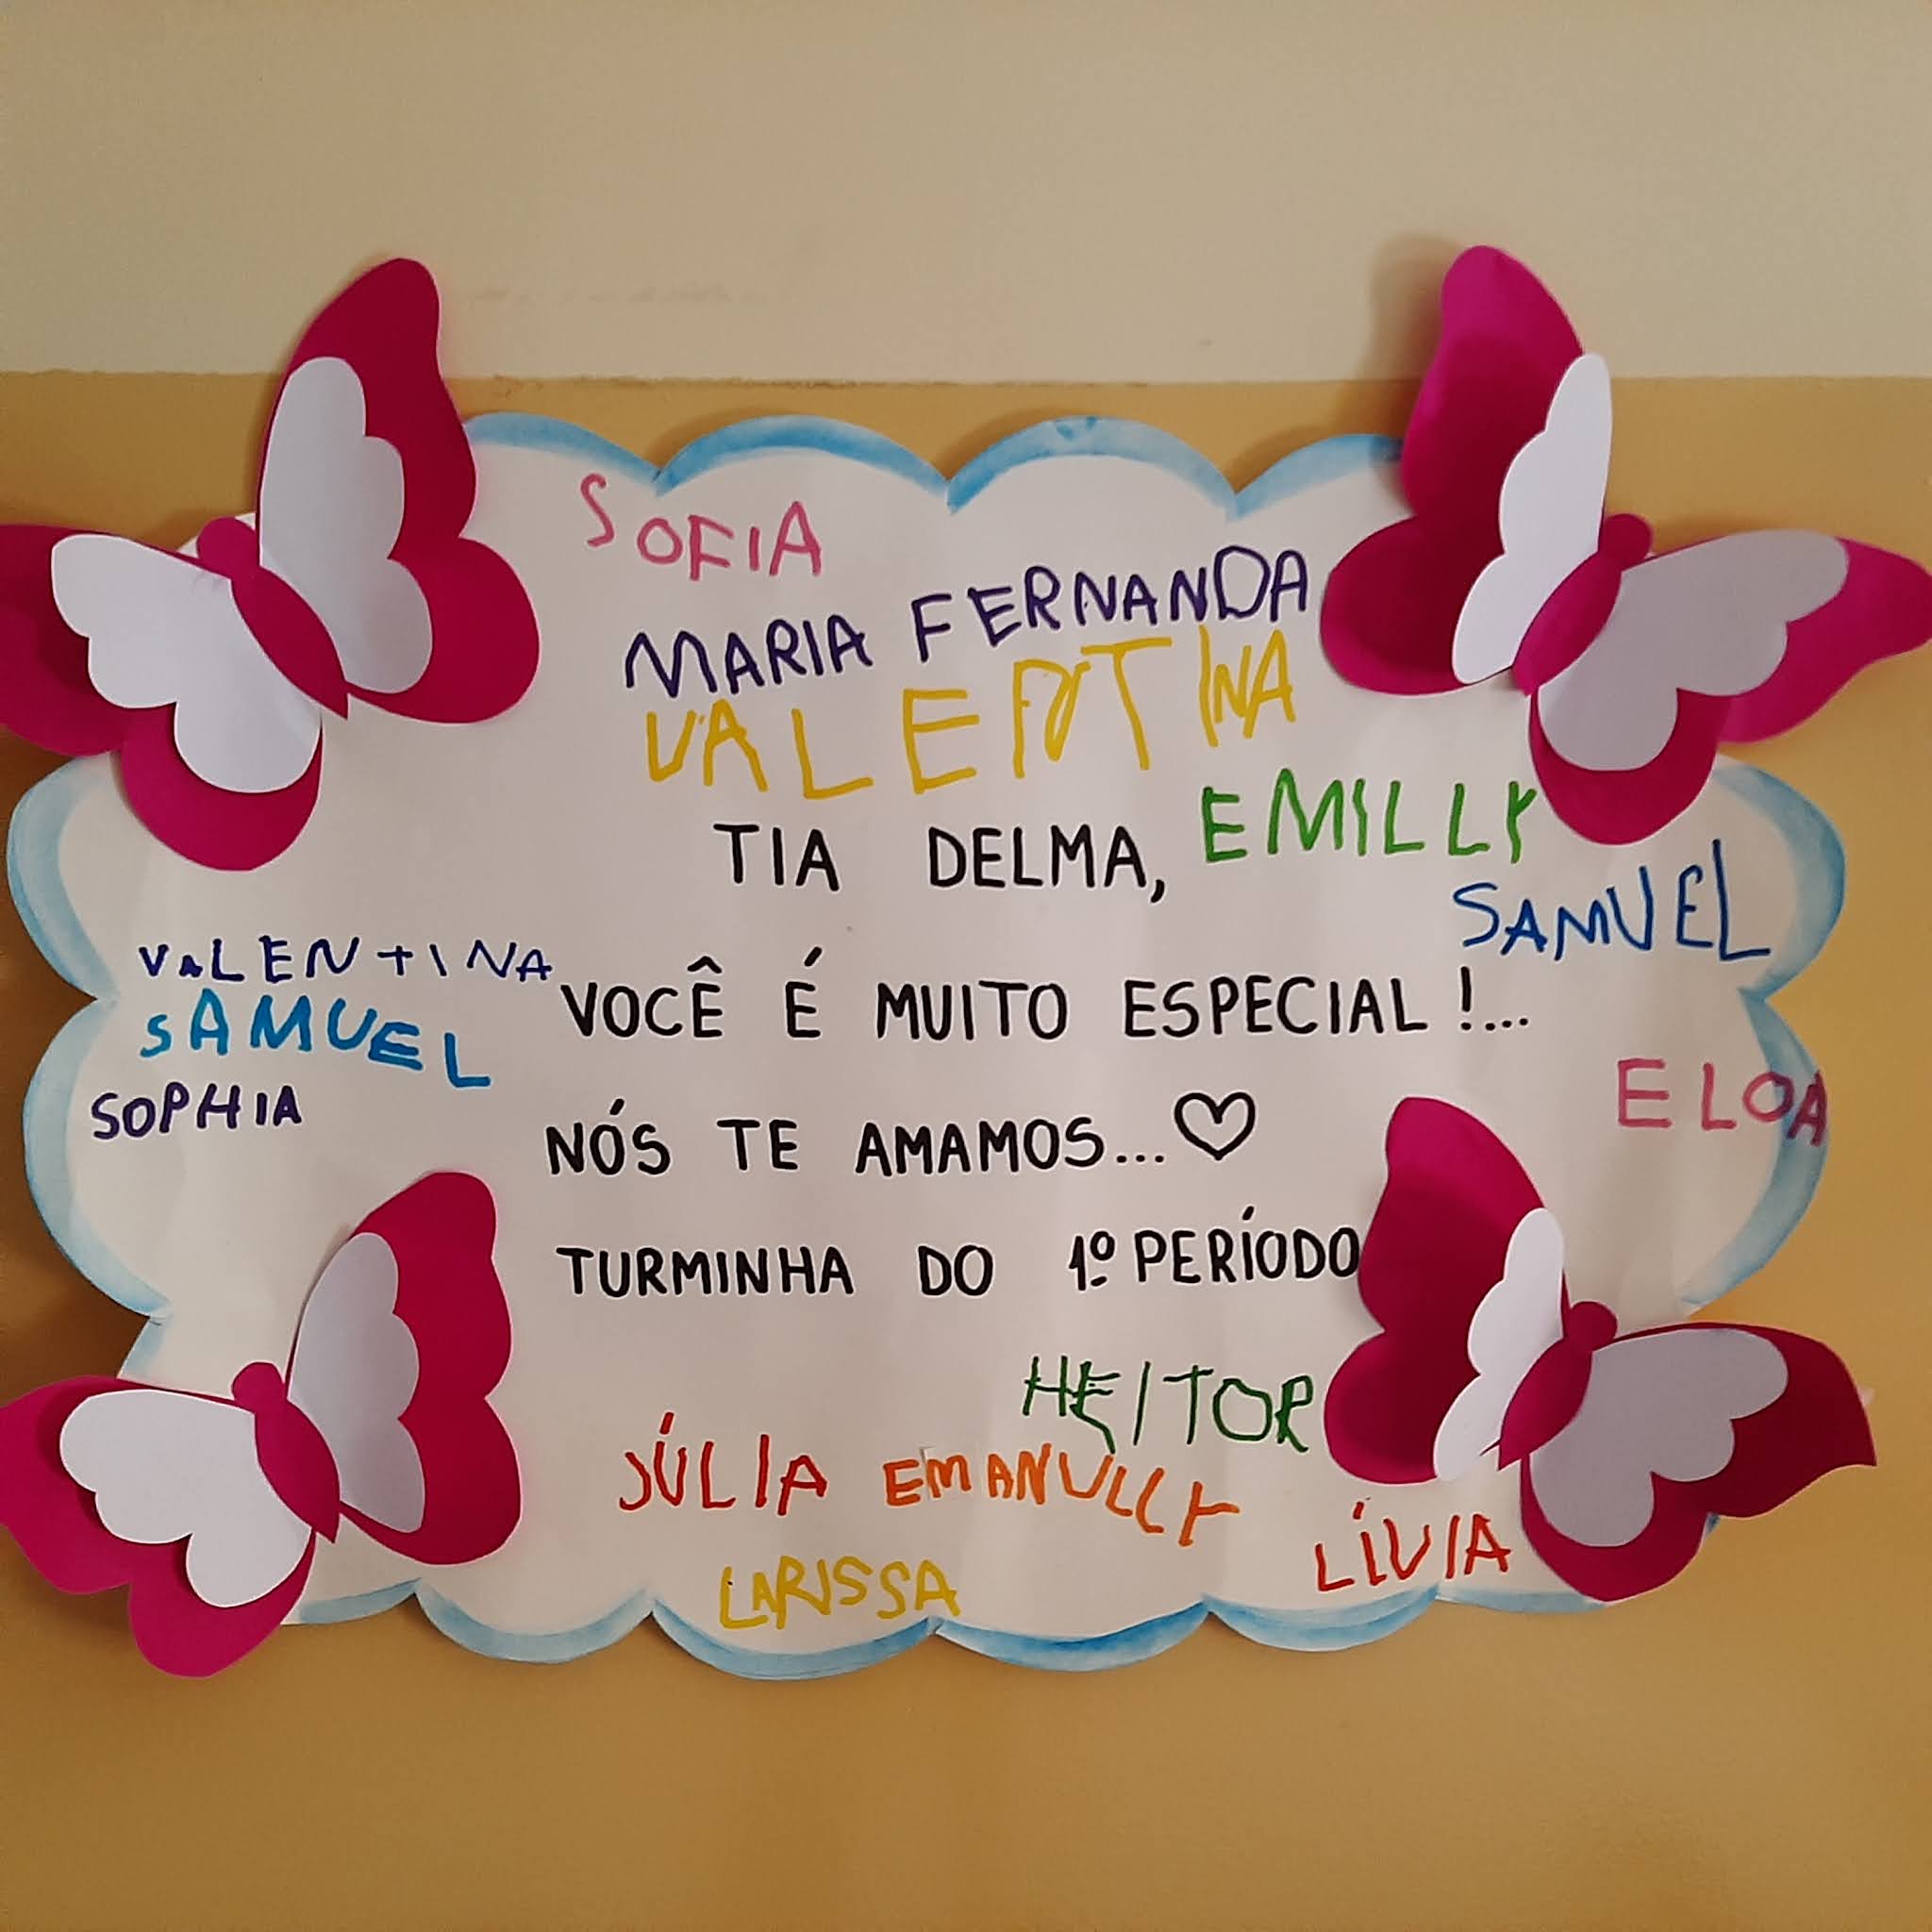 SOFIA
MARIA FERNANDA
VALENTINA
TIA DELMA,
EMILLY
SAMUEL
VALENTINA
VOCÊ É MUITO ESPECIAL!...
SAMUEL
SOPHIA
ELOA
NÓS TE AMAMOS...♡
TURMINHA DO 1º PERÍODO
HEITOR
JÚLIA EMANULLY
LÍVIA
LARISSA